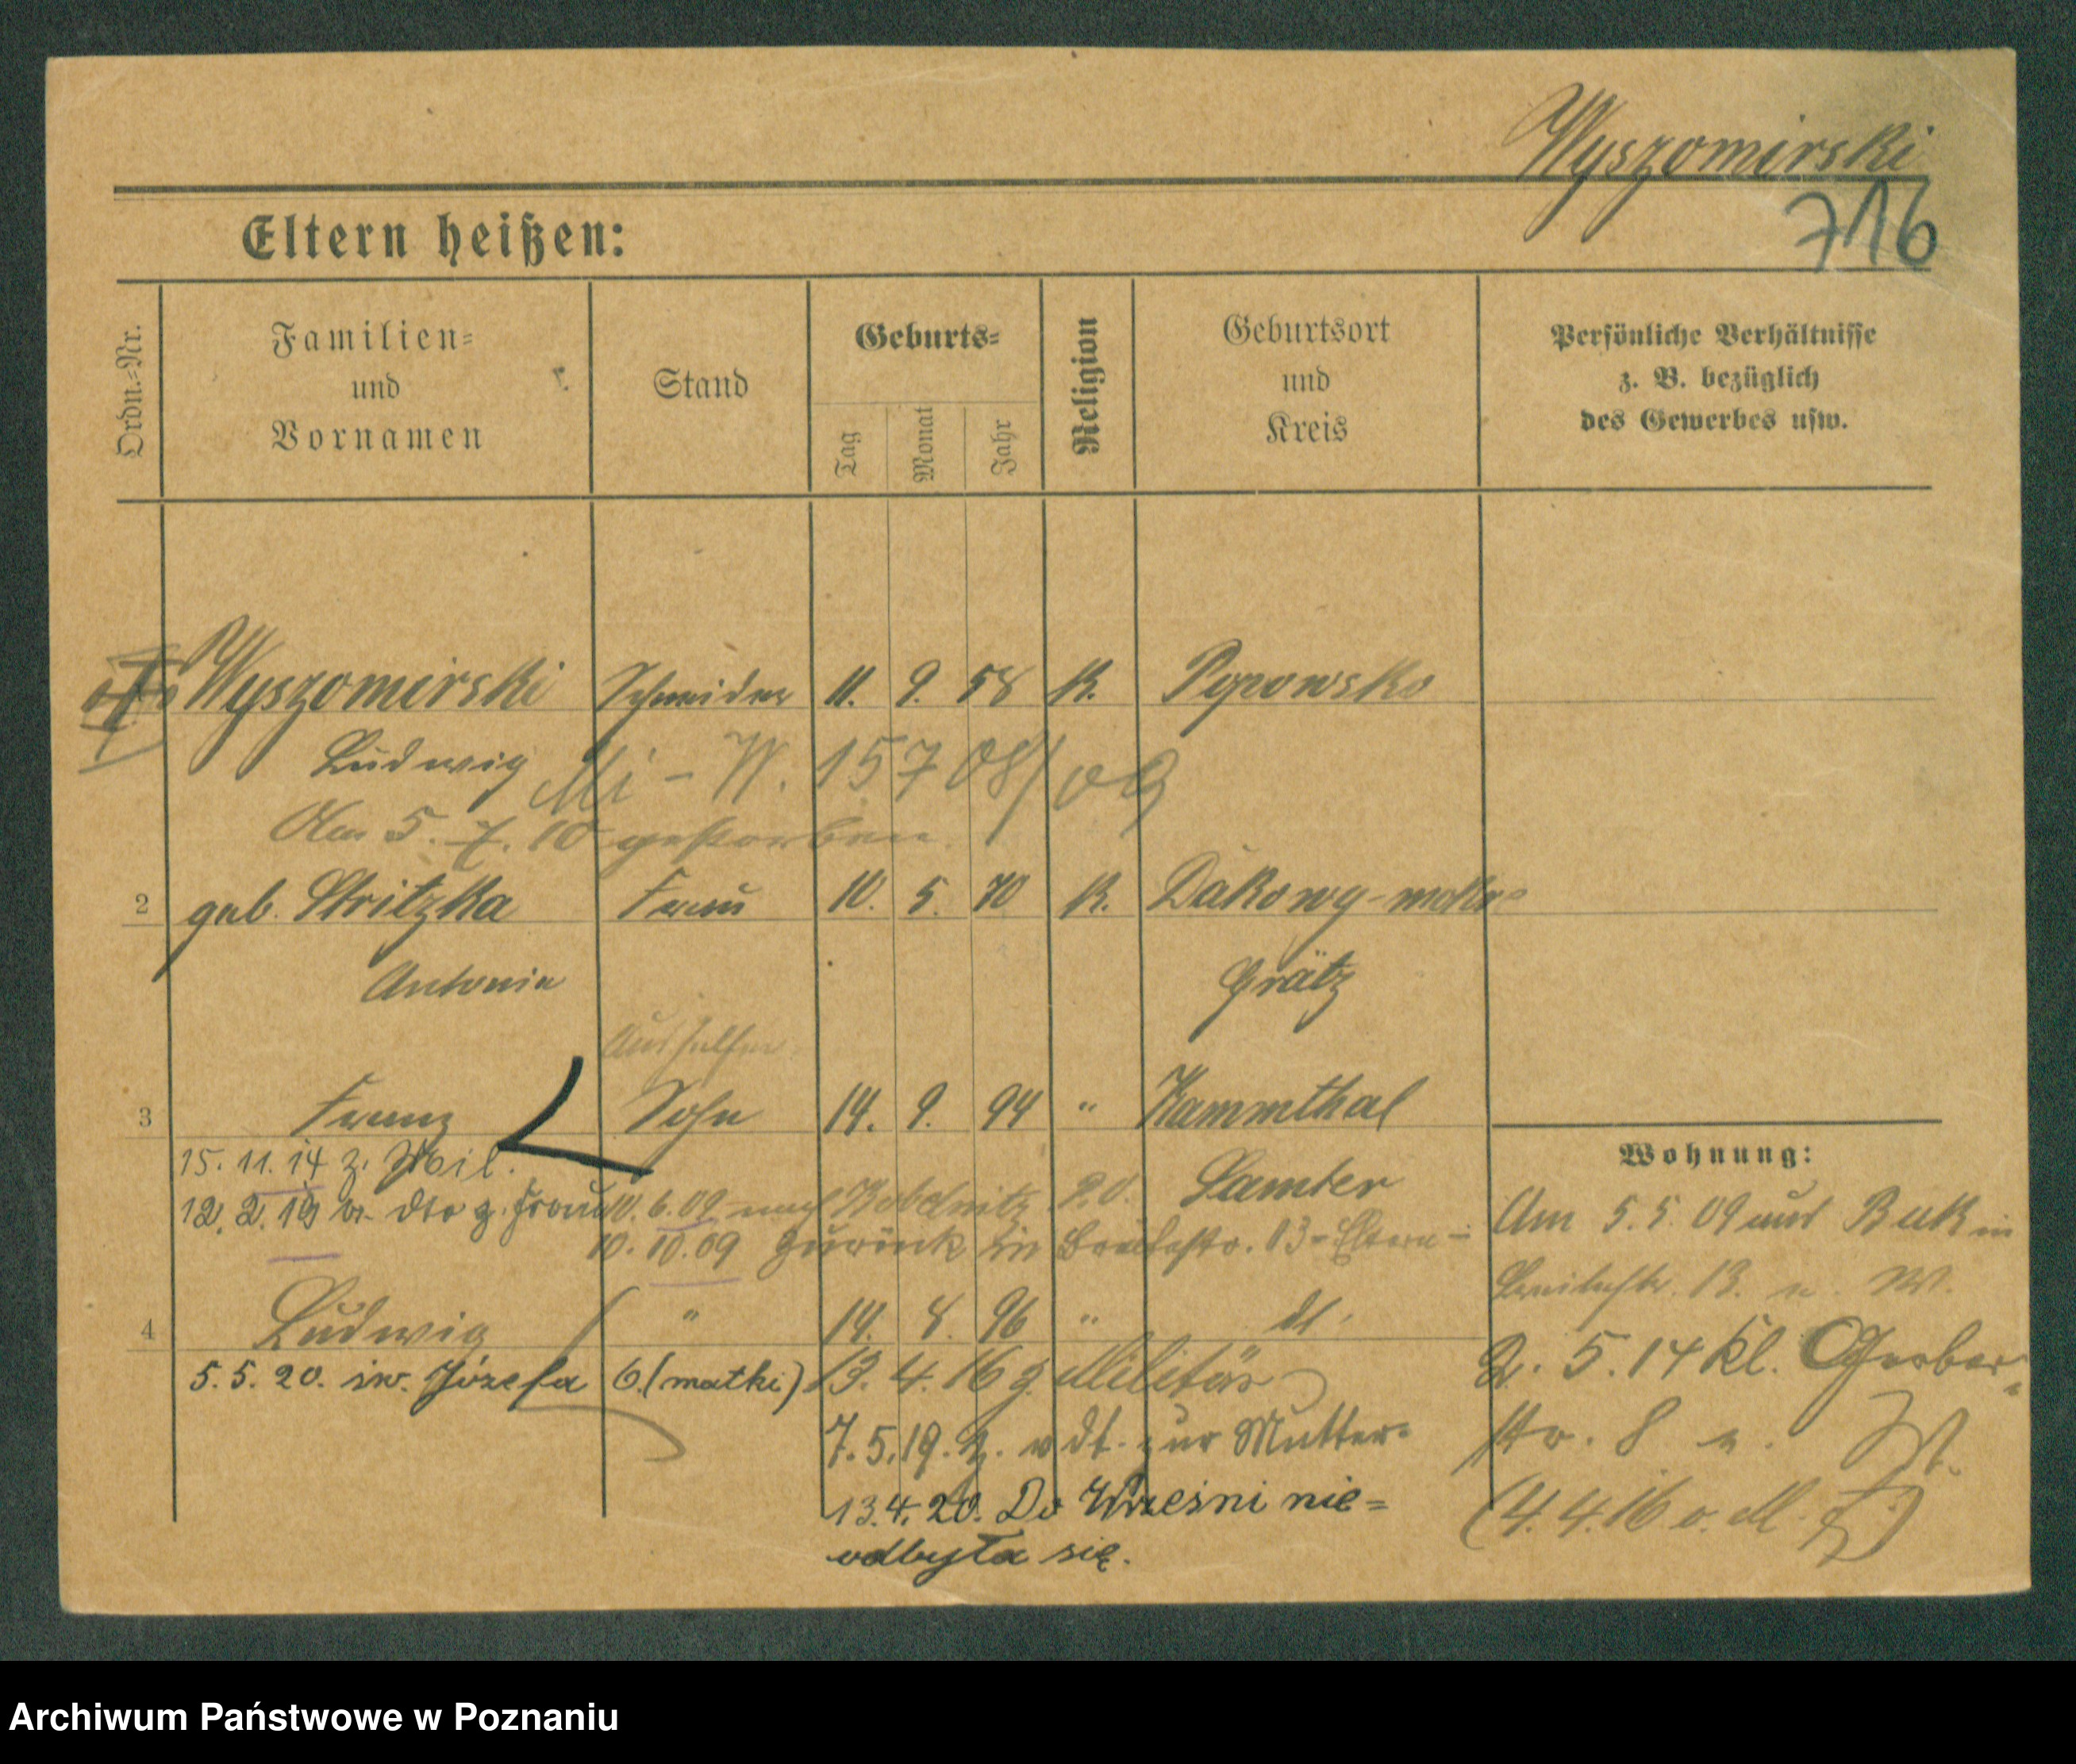 Wyszomirski
716
Eltern heißen:
Ordn.-Nr.
Familien-
und
Vornamen
Stand
Geburts-
Tag
Monat
Jahr
Religion
Geburtsort
und
Kreis
Persönliche Verhältnisse
z. B. bezüglich
des Gewerbes usw.
Wyszomirski Schneider 11. 9. 58 K. Popowsko
Ludwig
Mi - W. 15708/09
Am 5. 7. 10 gestorben
2 geb. Stritzka Frau 10. 5. 70 K. Dakowy-mokre
Antonie Grätz
3 Franz Sohn 14. 9. 94 " Kammthal
15. 11. 14 z. Mil. Samter
12. 2. 19 v. dto z. Frau
10. 6. 09 nach Kobelnitz P.O.
10. 10. 09 zurück in Breitestr. 13 - Eltern -
4 Ludwig " 14. 8. 96 " dt.
5. 5. 20. św. Józefa 6. (matki) 13. 4. 16 z. Militär
7. 5. 19. z. v dt. zur Mutter
13. 4. 20. Do Wrześni nie=
odbyła się.
Wohnung:
Am 5. 5. 09 aus Buk in
Breitestr. 13. n. W.
2. 5. 14 kl. Gerber-
str. 8 n. W.
(4. 4. 16 v. M.
Archiwum Państwowe w Poznaniu